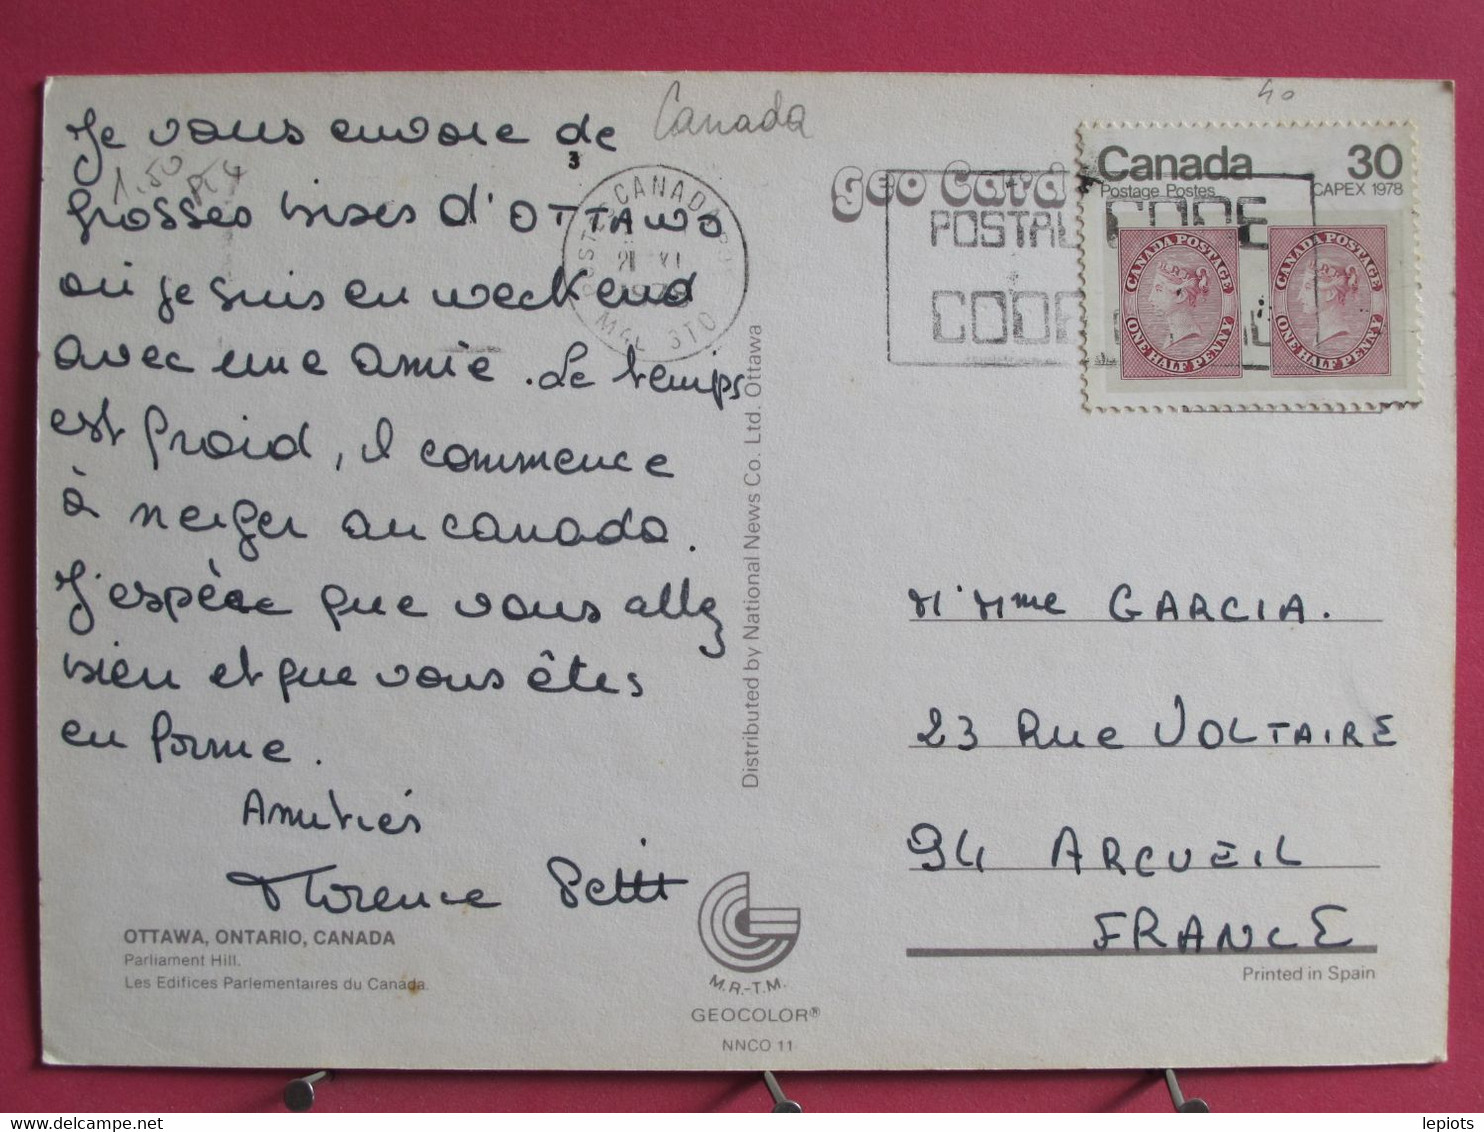 Canada
40
Je vous envoie de
3
1.50
grosses bises d'OTTAWA
où je suis en weekend
avec une amie. Le temps
est froid, il commence
à neiger au canada.
J'espère que vous allez
bien et que vous êtes
en forme.
Amitiés
Florence Petit
OTTAWA, ONTARIO, CANADA
Parliament Hill.
Les Edifices Parlementaires du Canada.
CANADA
geo Card
POSTAL CODE
CODE
Canada 30
Postage Postes CAPEX 1978
CANADA POSTAGE
ONE HALF PENNY
CANADA POSTAGE
ONE HALF PENNY
Distributed by National News Co. Ltd. Ottawa
M. Mme GARCIA.
23 Rue VOLTAIRE
94 ARCUEIL
FRANCE
Printed in Spain
M.R.-T.M.
GEOCOLOR®
NNCO 11
delcampe.net
lepiots